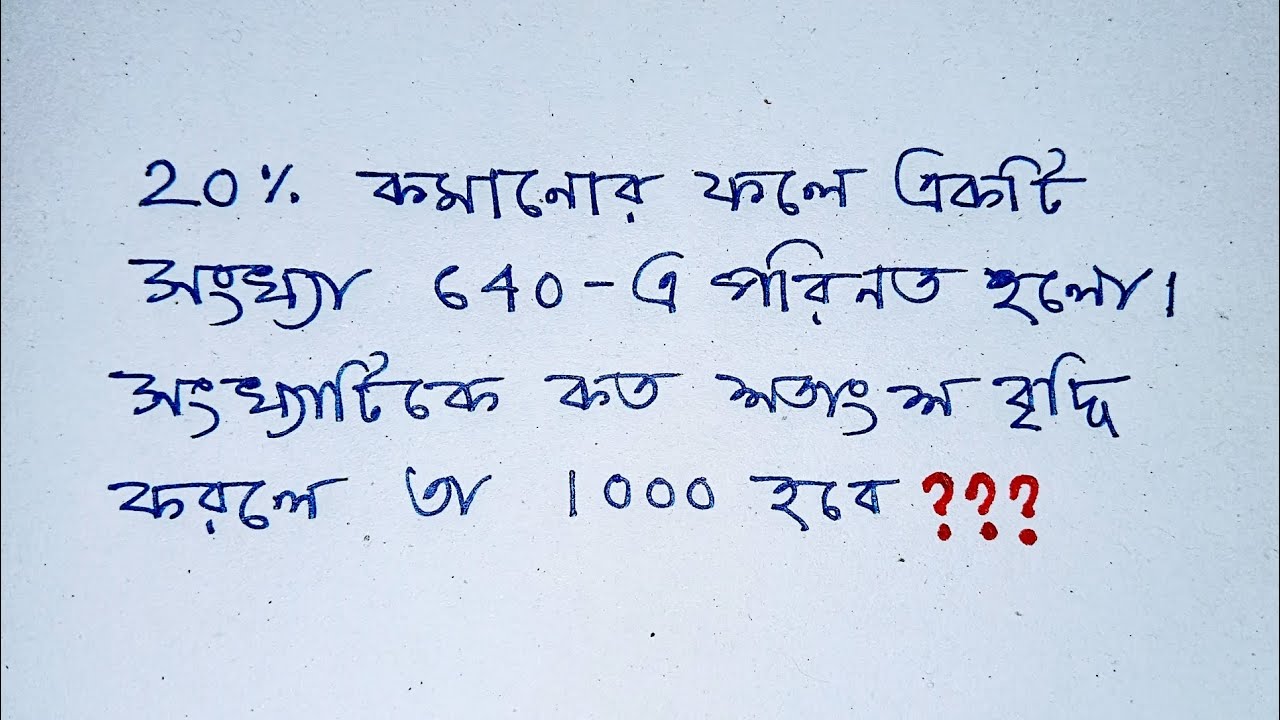 20% কমানোর ফলে একটি
সংখ্যা 640-এ পরিনত হলো।
সংখ্যাটিকে কত শতাংশ বৃদ্ধি
করলে তা 1000 হবে ???